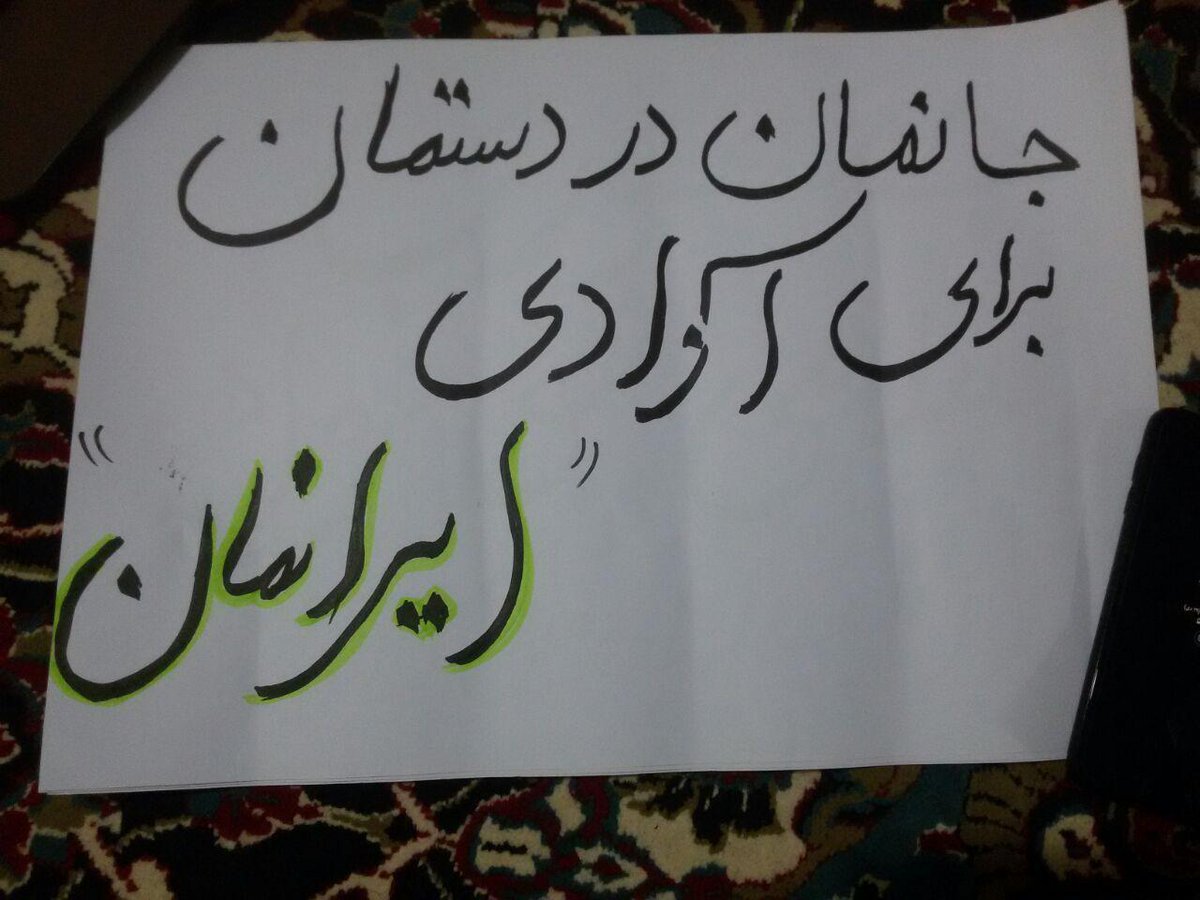 جانمان در دستمان
برای آزادی
"ایرانمان"